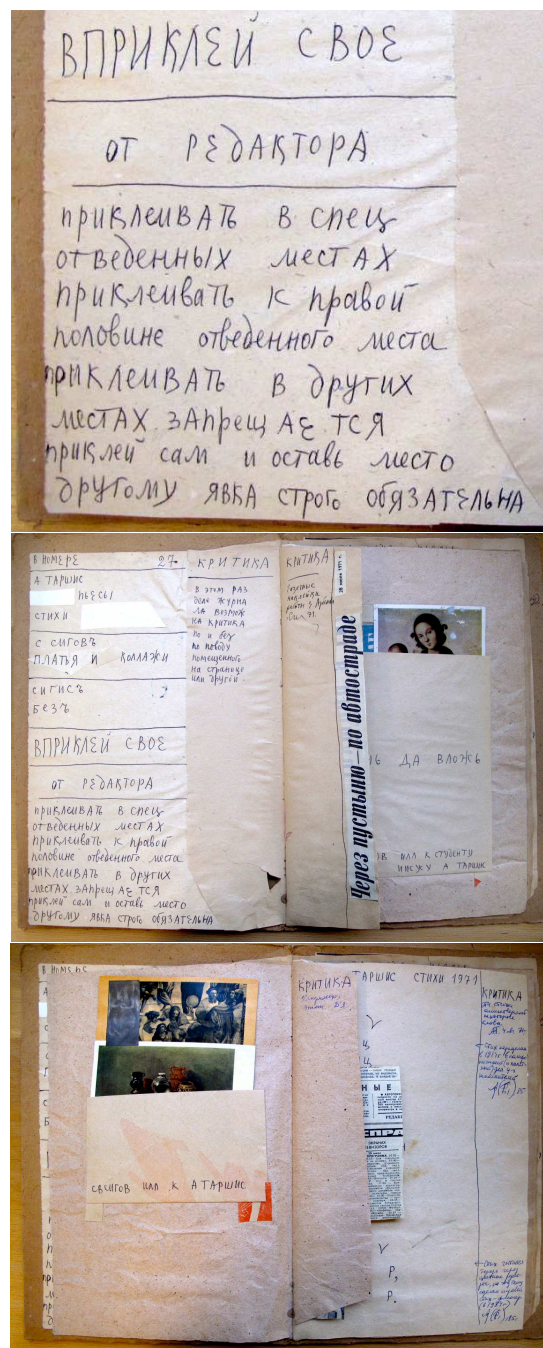 ВПРИКЛЕЙ СВОЕ
ОТ РЕДАКТОРА
ПРИКЛЕИВАТЬ В СПЕЦ
ОТВЕДЕННЫХ МЕСТАХ
ПРИКЛЕИВАТЬ К ПРАВОЙ
ПОЛОВИНЕ ОТВЕДЕННОГО МЕСТА
ПРИКЛЕИВАТЬ В ДРУГИХ
МЕСТАХ ЗАПРЕЩАЕТСЯ
ПРИКЛЕЙ САМ И ОСТАВЬ МЕСТО
ДРУГОМУ ЯВКА СТРОГО ОБЯЗАТЕЛЬНА
В НОМЕРЕ 27.
А ТАРШИС
ПЬЕСЫ
СТИХИ
С СИГОВЪ
ПЛАТЬЯ И КОЛЛАЖИ
СИГИСЪ 2
БЕЗЪ
ВПРИКЛЕЙ СВОЕ
ОТ РЕДАКТОРА
ПРИКЛЕИВАТЬ В СПЕЦ
ОТВЕДЕННЫХ МЕСТАХ
ПРИКЛЕИВАТЬ К ПРАВОЙ
ПОЛОВИНЕ ОТВЕДЕННОГО МЕСТА
ПРИКЛЕИВАТЬ В ДРУГИХ
МЕСТАХ ЗАПРЕЩАЕТСЯ
ПРИКЛЕЙ САМ И ОСТАВЬ МЕСТО
ДРУГОМУ ЯВКА СТРОГО ОБЯЗАТЕЛЬНА
КРИТИКА
В ЭТОМ РАЗ
ДЕЛЕ ЖУРНА
ЛА ВОЗМОЖ
НА КРИТИКА
ПО И БЕЗ
ПО ПОВОДУ
ПОМЕЩЕННОГО
НА СТРАНИЦЕ
ИЛИ ДРУГОЙ
КРИТИКА
Через пустыню—по автостраде
1971 г.
ДА ВЛОЖЬ
ИЛЛ К СТУДЕНТУ
А ТАРШИС
В НОМЕРЕ
СВСИГОВ ИЛЛ К А ТАРШИС
КРИТИКА
ТАРШИС СТИХИ 1971
КРИТИКА
НЫЕ
Р,
Р.